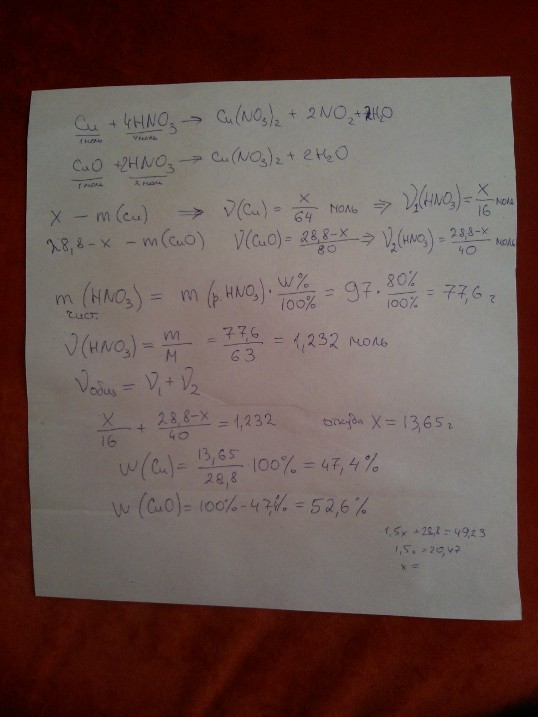 Cu + 4HNO₃ → Cu(NO₃)₂ + 2NO₂ + 2H₂O
1 моль 4 моль
CuO + 2HNO₃ → Cu(NO₃)₂ + 2H₂O
1 моль 2 моль
X – m(Cu) ⇒ ν(Cu) = X/64 моль ⇒ ν₁(HNO₃) = X/16 моль
28,8-x – m(CuO) ν(CuO) = 28,8-x/80 ⇒ ν₂(HNO₃) = 28,8-x/40 моль
m(HNO₃) = m(р. HNO₃) · W%/100% = 97 · 80%/100% = 77,6 г
чист.
ν(HNO₃) = m/M = 77,6/63 = 1,232 моль
νобщ = ν₁ + ν₂
X/16 + 28,8-x/40 = 1,232 откуда X = 13,65 г
W(Cu) = 13,65/28,8 100% = 47,4%
W(CuO) = 100% - 47,4% = 52,6%
1,5x + 28,8 = 49,23
1,5x = 20,47
x =